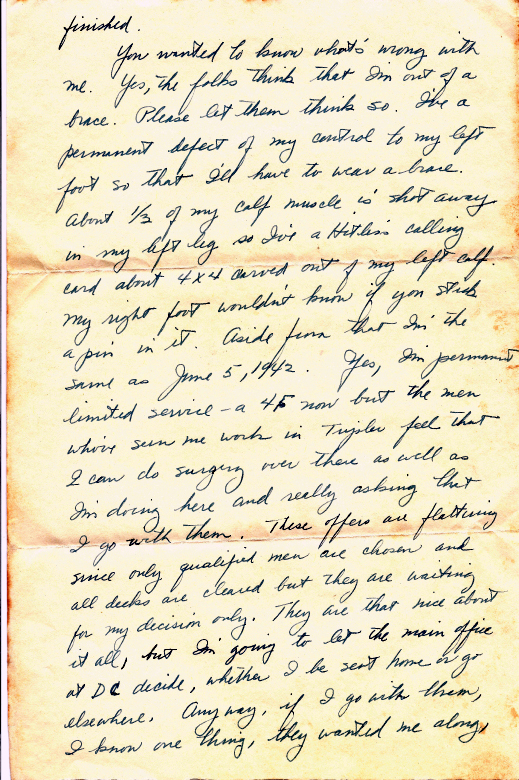 finished.
You wanted to know what's wrong with
me. Yes, the folks think that I'm out of a
brace. Please let them think so. I've a
permanent defect of my control to my left
foot so that I'll have to wear a brace.
About 1/3 of my calf muscle is shot away
in my left leg so I've a Hitler's calling
card about 4x4 carved out of my left calf.
My right foot wouldn't know if you stuck
a pin in it. Aside from that I'm the
same as June 5, 1942. Yes, I'm permanent
limited service - a 4F now but the men
who've seen me work in feel that
I can do surgery over there as well as
I'm doing here and really asking that
I go with them. These offers are flattering
since only qualified men are chosen and
all decks are cleared but they are waiting
for my decision only. They are that nice about
it all, but I'm going to let the main office
at DC decide, whether I be sent home or go
elsewhere. Anyway, if I go with them,
I know one thing, they wanted me along,